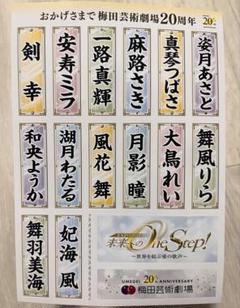 おかげさまで 梅田芸術劇場20周年
20th
姿月あさと
真琴つばさ
麻路さき
一路真輝
安寿ミラ
剣幸
舞風りら
大鳥れい
月影瞳
風花舞
湖月わたる
和央ようか
妃海風
舞羽美海
未来へのOne Step!
〜世界を結ぶ愛の歌声〜
UMEGEI 20th ANNIVERSARY
梅田芸術劇場